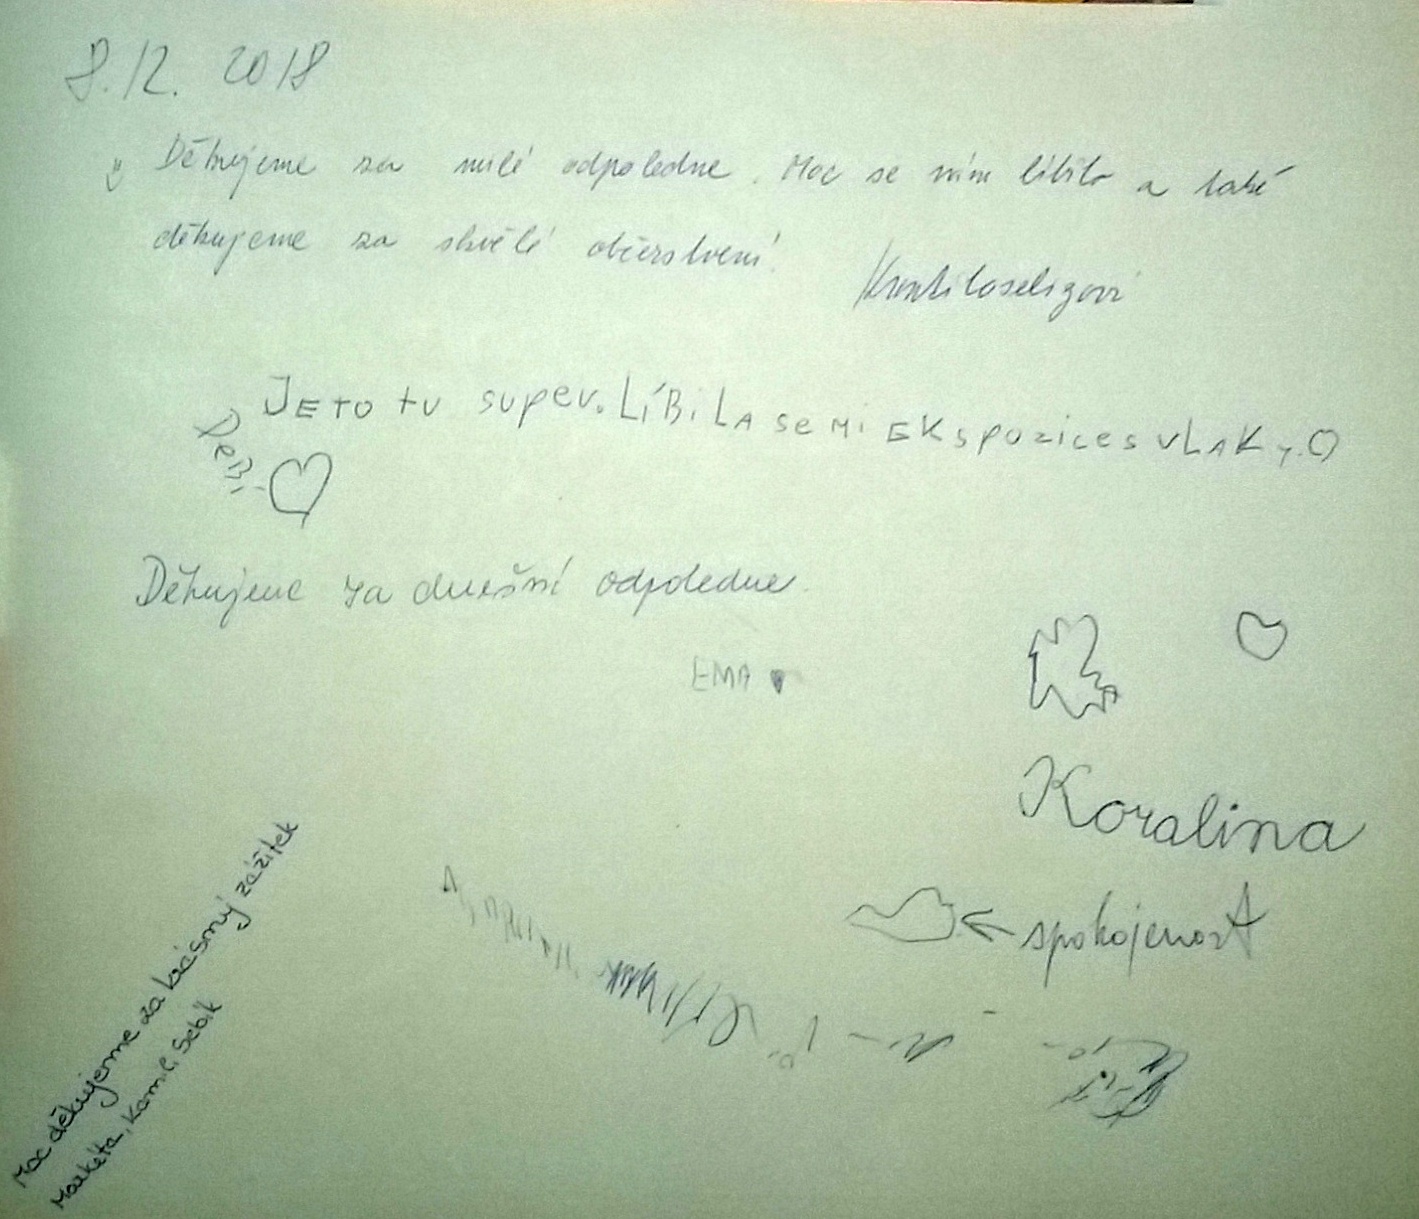 8.12. 2018
Děkujeme za milé odpoledne. Moc se nám líbilo a také
děkujeme za skvělé občerstvení.
JETO tu super. LÍBILA se Mi EKspozice s VLAKy.
DeBi
Děkujeme za dnešní odpoledne.
EMA
Koralina
spokojenost
Moc děkujeme za krásný zážitek
Markéta, Kamil, Sebík